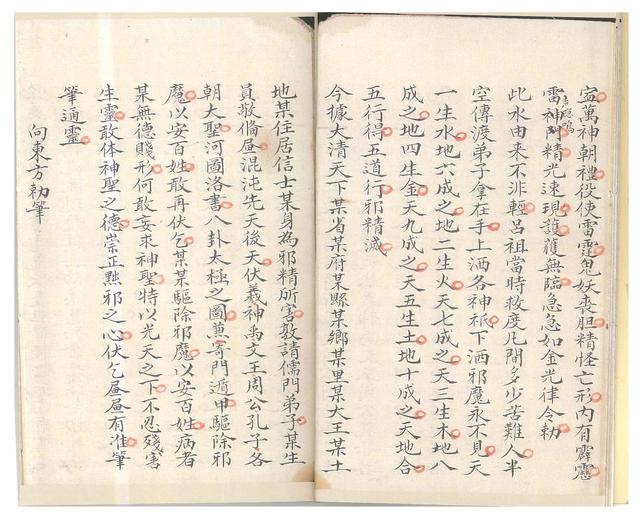 萬神朝禮役使雷霆鬼妖喪胆精怪亡形內有霹靂
雷神精光速現護護無臨急急如金光律令勅
此水由來不非輕呂祖當時救度凡間多少苦難人半
空傳渡弟子拿在手上洒各神祇下洒邪魔永不見天
一生水地六成之地二生火天七成之天三生木地八
成之地四生金天九成之天五生土地十成之天地合
五行得五道行邪精滅
今據大清天下某省某府某縣某鄉某里某大王某土
地某住居信士某身為邪精所害敦請儒門弟子某生
員敬俻昼混沌先天後天伏羲神禹文王周公孔子各
朝大聖河圖洛書八卦太極之圖兼寄門遁甲驅除邪
魔以安百姓敢再伏乞某某驅除邪魔以安百姓病者
某無德賤形何敢妄求神聖特以光天之下不忍殘害
生靈敢体神聖之德崇正黜邪之心伏乞昼昼有准筆
筆通靈
向東方勅筆